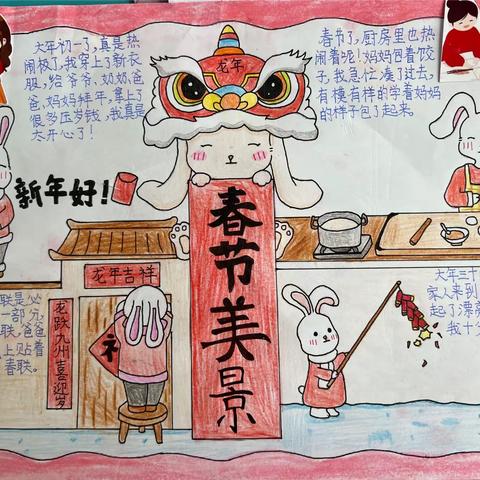 大年初一了,真是热
闹极了,我穿上了新衣
服,给爷爷、奶奶、爸
爸、妈妈拜年,拿上了
很多压岁钱,我真是
太开心了!
龙年
春节了,厨房里也热
闹着呢!妈妈包着饺
子,我急忙凑了过去,
有模有样的学着妈妈
的样子包了起来。
新年好!
春节美景
龙年吉祥
龙跃九州喜迎岁
联是必
一部分,
联,爸爸
上贴着
春联。
大年三十
家人来到
起了漂亮
我十分